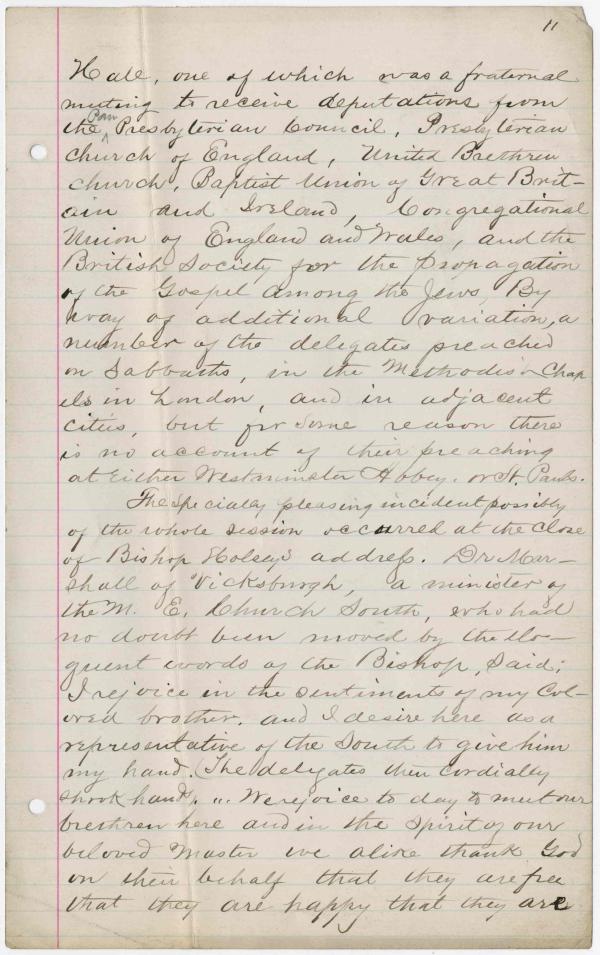 11
Hall, one of which was a fraternal
meeting to receive deputations from
the Pan Presbyterian Council, Presbyterian
church of England, United Brethren
church, Baptist Union of Great Brit-
ain and Ireland, Congregational
Union of England and Wales, and the
British Society for the Propagation
of the Gospel among the Jews, By
way of additional variation, a
number of the delegates preached
on Sabbaths, in the Methodist Chap
els in London, and in adjacent
cities, but for some reason there
is no account of their preaching
at Either Westminster Abbey. or St. Pauls.
The specially pleasing incident possibly
of the whole session occurred at the close
of Bishop Holsey's address. Dr Mar-
shall of Vicksburgh, a minister of
the M. E. Church South, who had
no doubt been moved by the elo-
quent words of the Bishop, Said;
I rejoice in the sentiments of my Col-
ored brother. and I desire here as a
representative of the South to give him
my hand. (The delegates then cordially
shook hands). "We rejoice to day to meet our
brethren here and in the spirit of our
beloved Master we alike thank God
on their behalf that they are free
that they are happy that they are